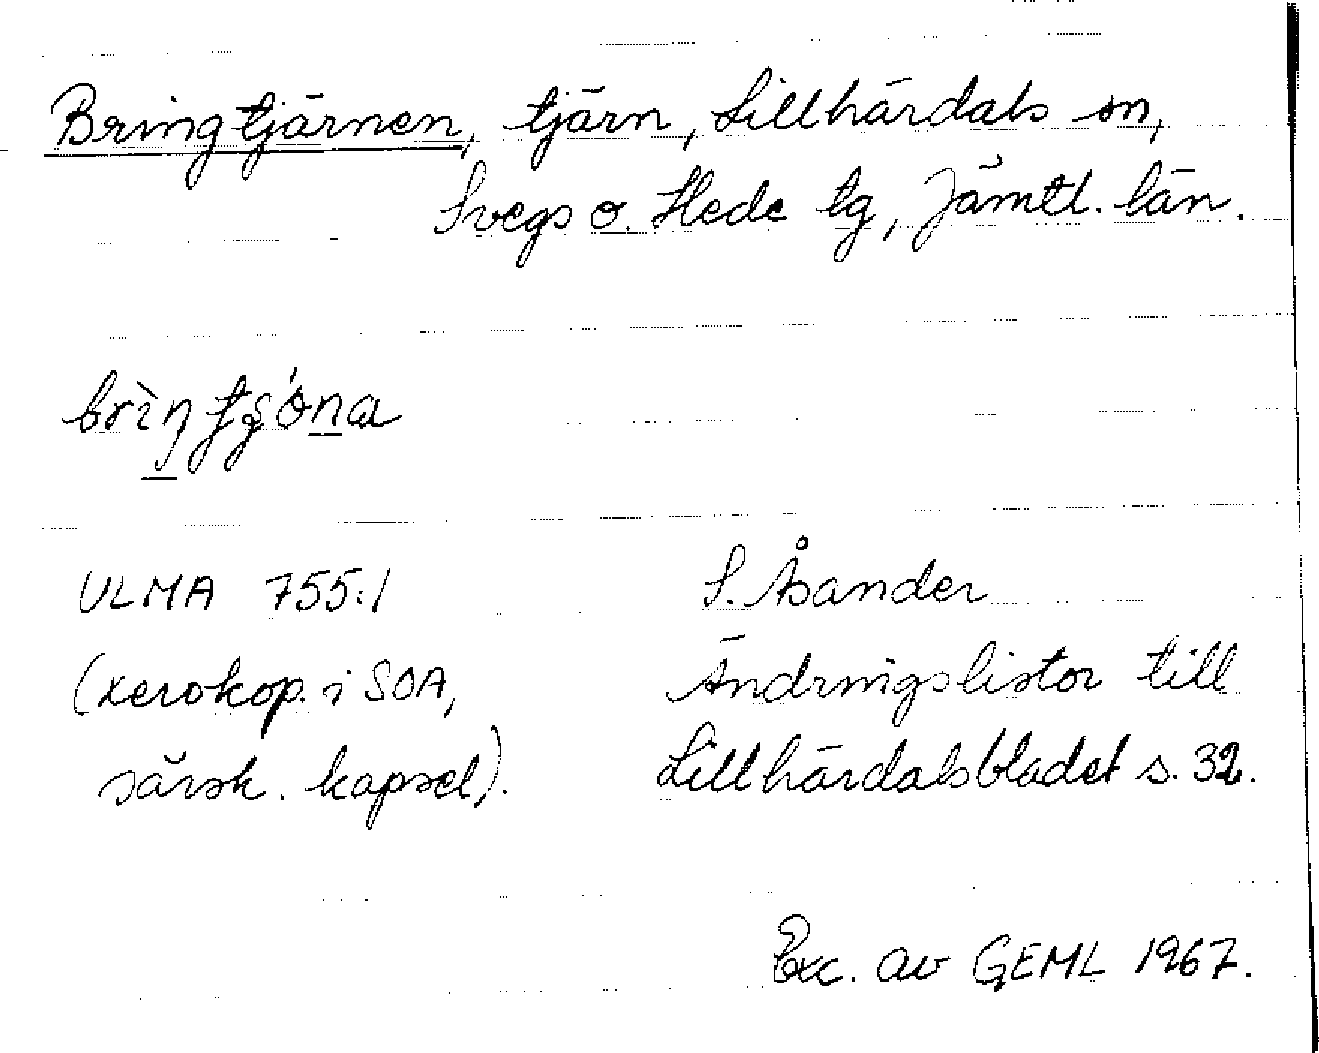 Bringtjärnen, tjärn, Lillhärdals sn,
Svegs o. Hede tg, Jämtl. län.
brìŋtʂǿna
ULMA 755:1 S. Åsander
(xerokop. i SOA, Ändringslistor till
särsk. kapsel). Lillhärdalsbladet s. 32.
Exc. av GEML 1967.